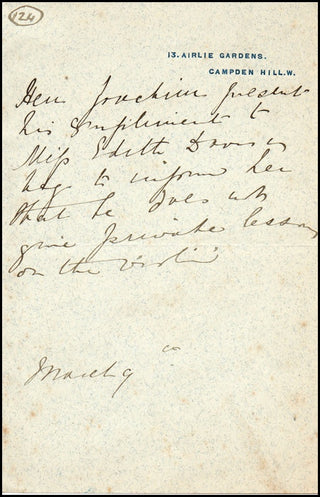 124
13. AIRLIE GARDENS.
CAMPDEN HILL. W.
Herr Joachim presents
his compliments to
Miss Edith Davis &
beg to inform her
that he does not
give private lessons
on the violin
March 9